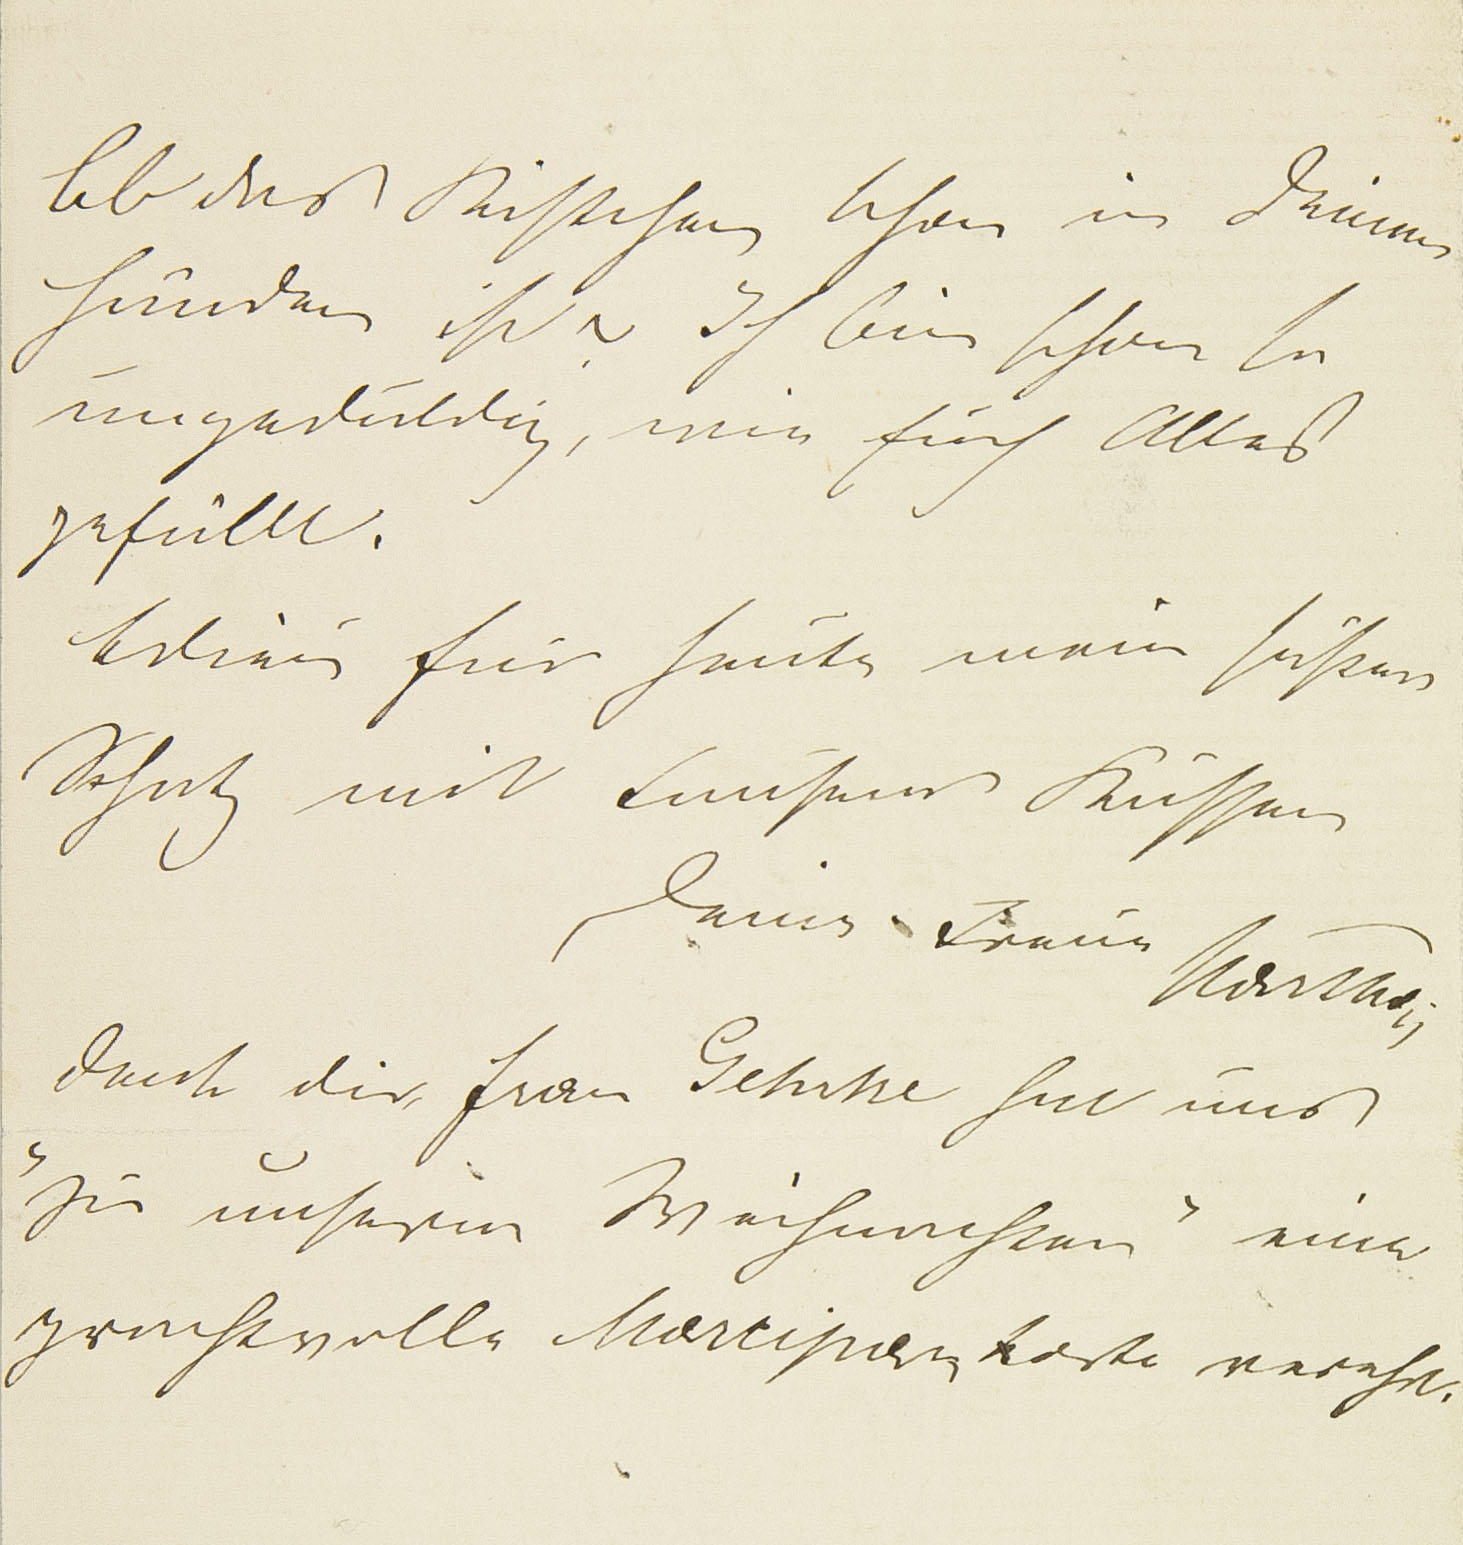 Ob das Kistchen schon in Deinen
Händen ist? Ich bin schon so
ungeduldig, wie Euch Alles
gefällt.
Adieu für heute mein süßer
Schatz mit tausend Küssen
Deine treue Marthe
Denk dir, Frau Gehrke hat uns
"zu unseren Weihnachten" eine
prachtvolle Marcipan torte verehrt.